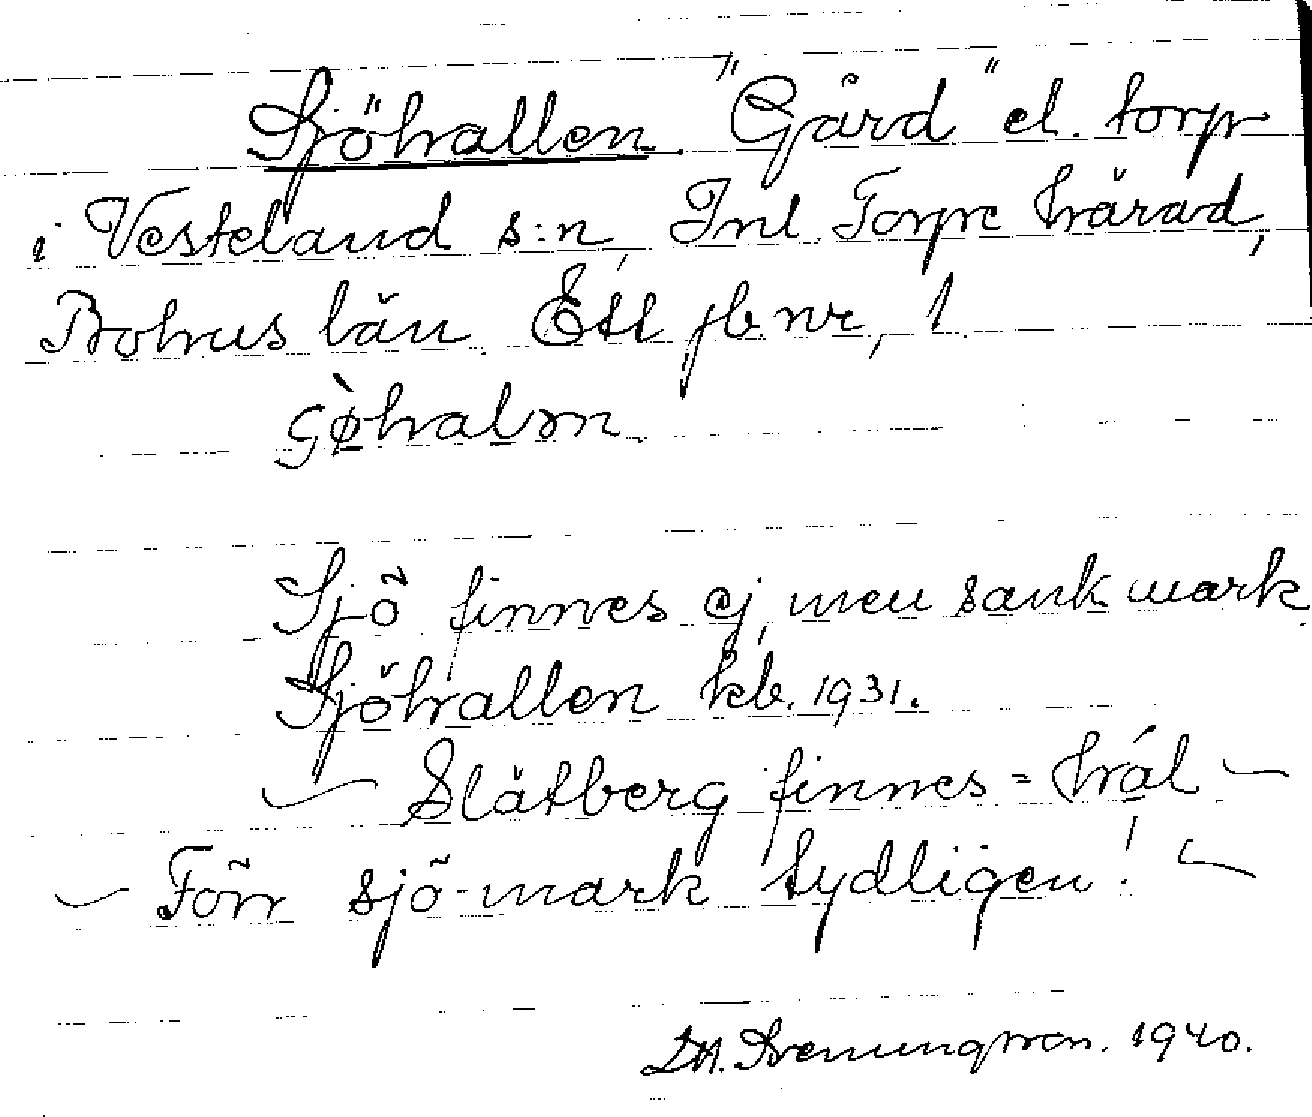 Sjöhallen. "Gård" el. torp
i Vesteland s:n, Inl. Torpe härad,
Bohus län. Ett jb nr, 1.
Sjö finnes ej, men sank mark.
Sjöhallen kb. 1931.
Slätberg finnes = häl
Förr sjö-mark tydligen!
1940.